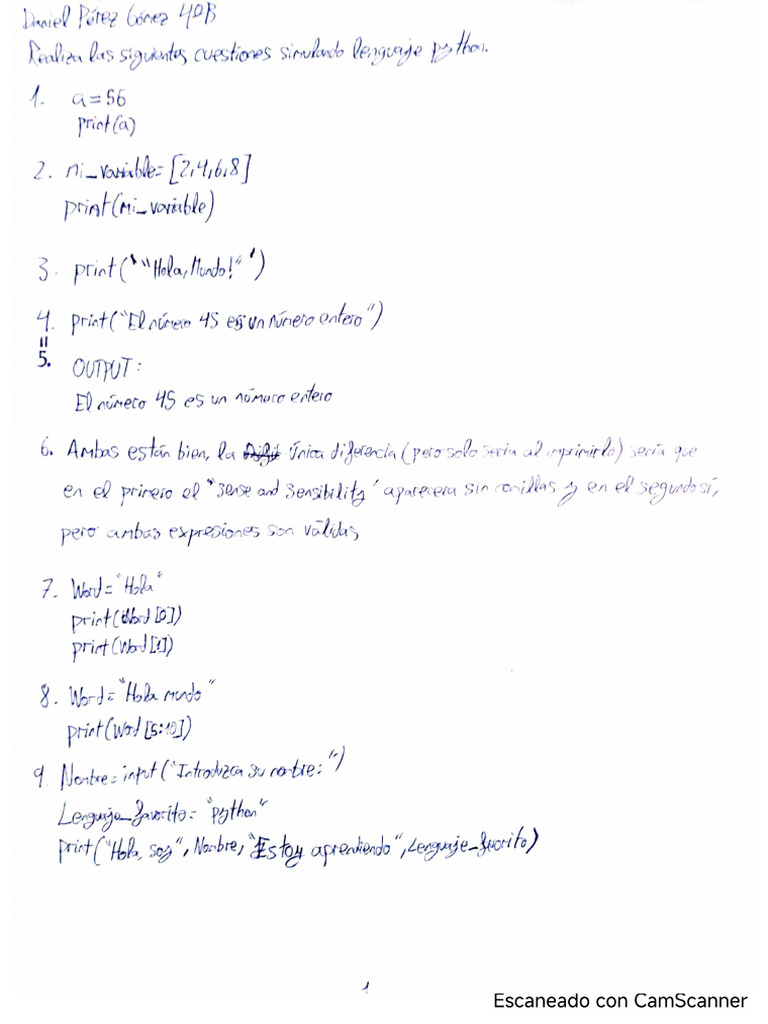 Daniel Pérez Gómez 4ºB
Realiza las siguientes cuestiones simulando lenguaje python.
1. a=56
print(a)
2. mi_variable=[2,4,6,8]
print(mi_variable)
3. print('"Hola, Mundo!"')
4. print("El número 45 es un número entero")
=
5. OUTPUT:
El número 45 es un número entero
6. Ambas están bien, la única diferencia (pero solo seria al imprimirlo) sería que
en el primero el "Sense and Sensibility' aparecera sin comillas y en el segundo sí,
pero ambas expresiones son válidas
7. Word="Hola"
print(Word[0])
print(Word[1])
8. Word="Hola mundo"
print(Word[5:10])
9. Nombre=input("Introduzca su nombre:")
Lenguaje_favorito="python"
print("Hola, soy", Nombre, "Estoy aprendiendo", Lenguaje_favorito)
1
Escaneado con CamScanner